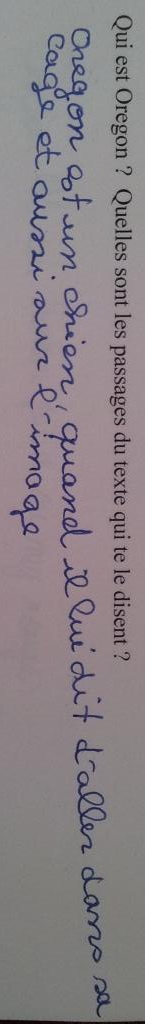 Qui est Oregon ? Quelles sont les passages du texte qui te le disent ?
Oregon est un chien, quand il lui dit d'aller dans sa
cage et aussi sur l'image